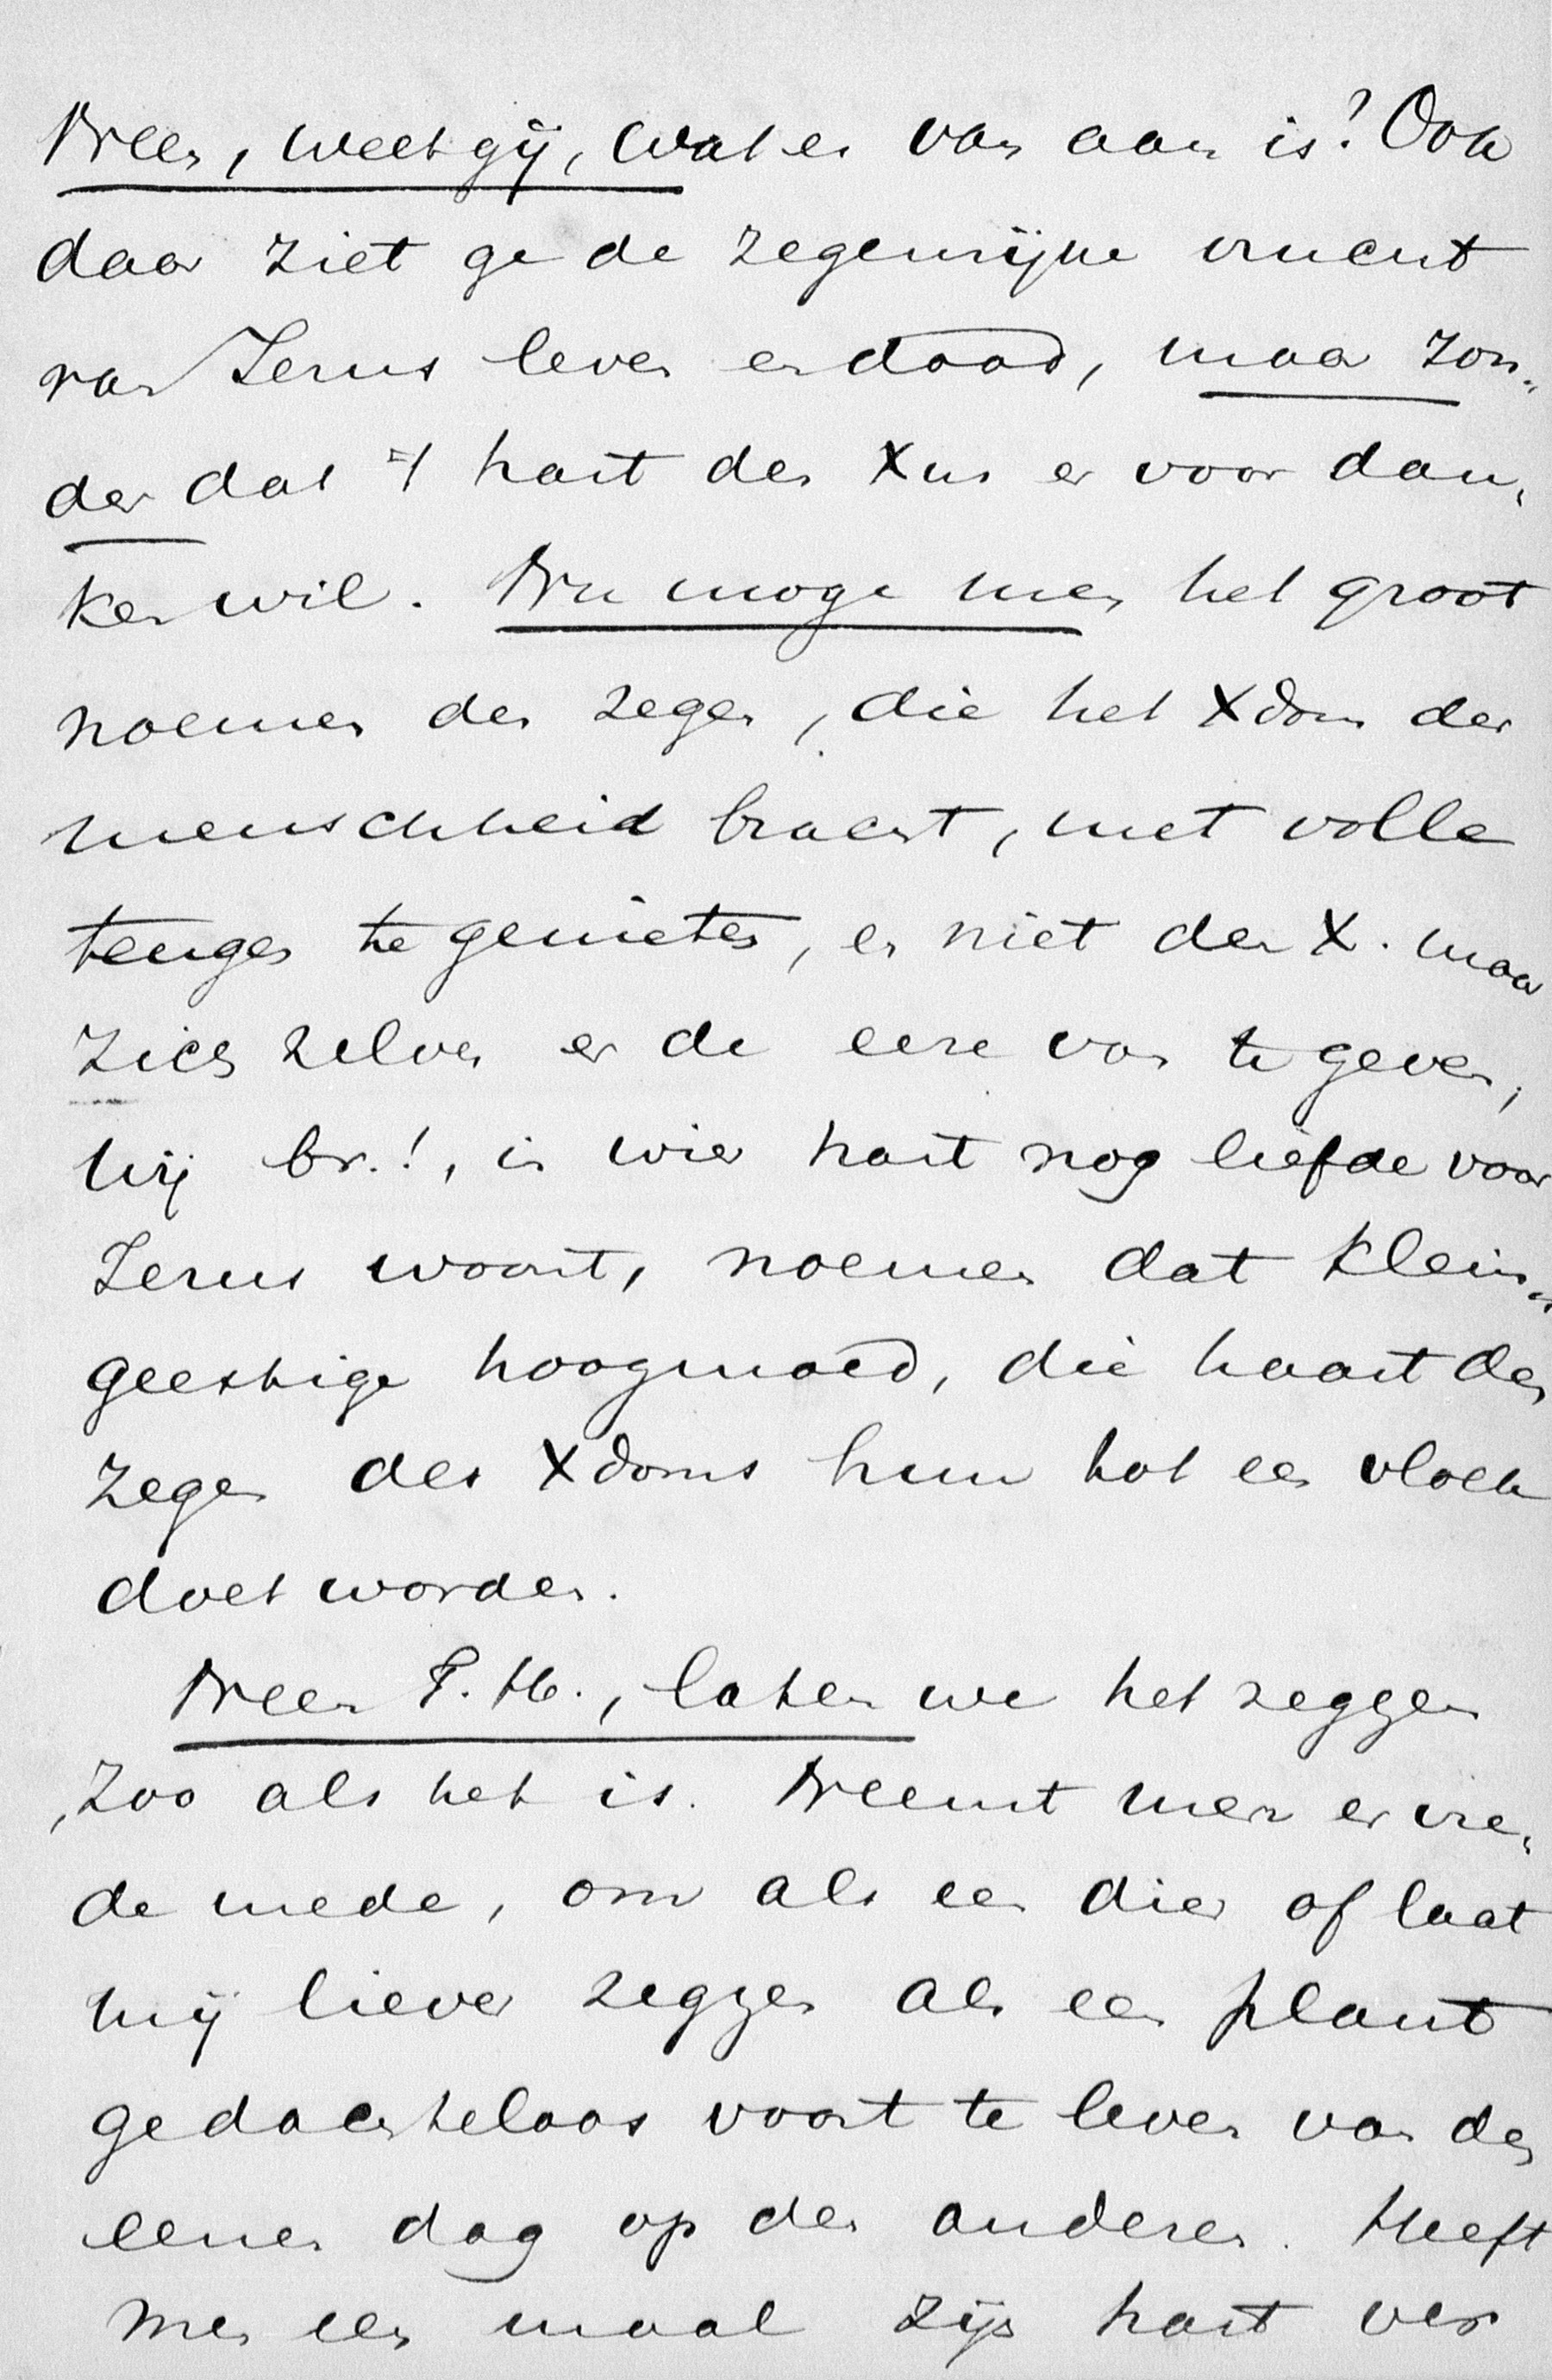 Neen, weet gij, wat er van aan is? Ook
daar ziet ge de zegenrijke vrucht
van Jezus leven en dood, maar zon„
der dat 't hart den Xus er voor dan„
ken wil. Nu moge men het groot
noemen den zegen, die het Xdom der
menschheid bracht, met volle
teugen te genieten, en niet den X. maar
zich zelven er de eere van te geven,
wij br.!, in wier hart nog liefde voor
Jezus woont, noemen dat klein„
geestige hoogmoed, die haast den
zegen des Xdoms hun tot een vloek
doet worden.
Neen T. H., laten we het zeggen
zoo als het is. Neemt men er vre„
de mede, om als een dier of laat
mij liever zeggen als een plant
gedachteloos voort te leven van den
eenen dag op den anderen. Heeft
men een maal zijn hart ver